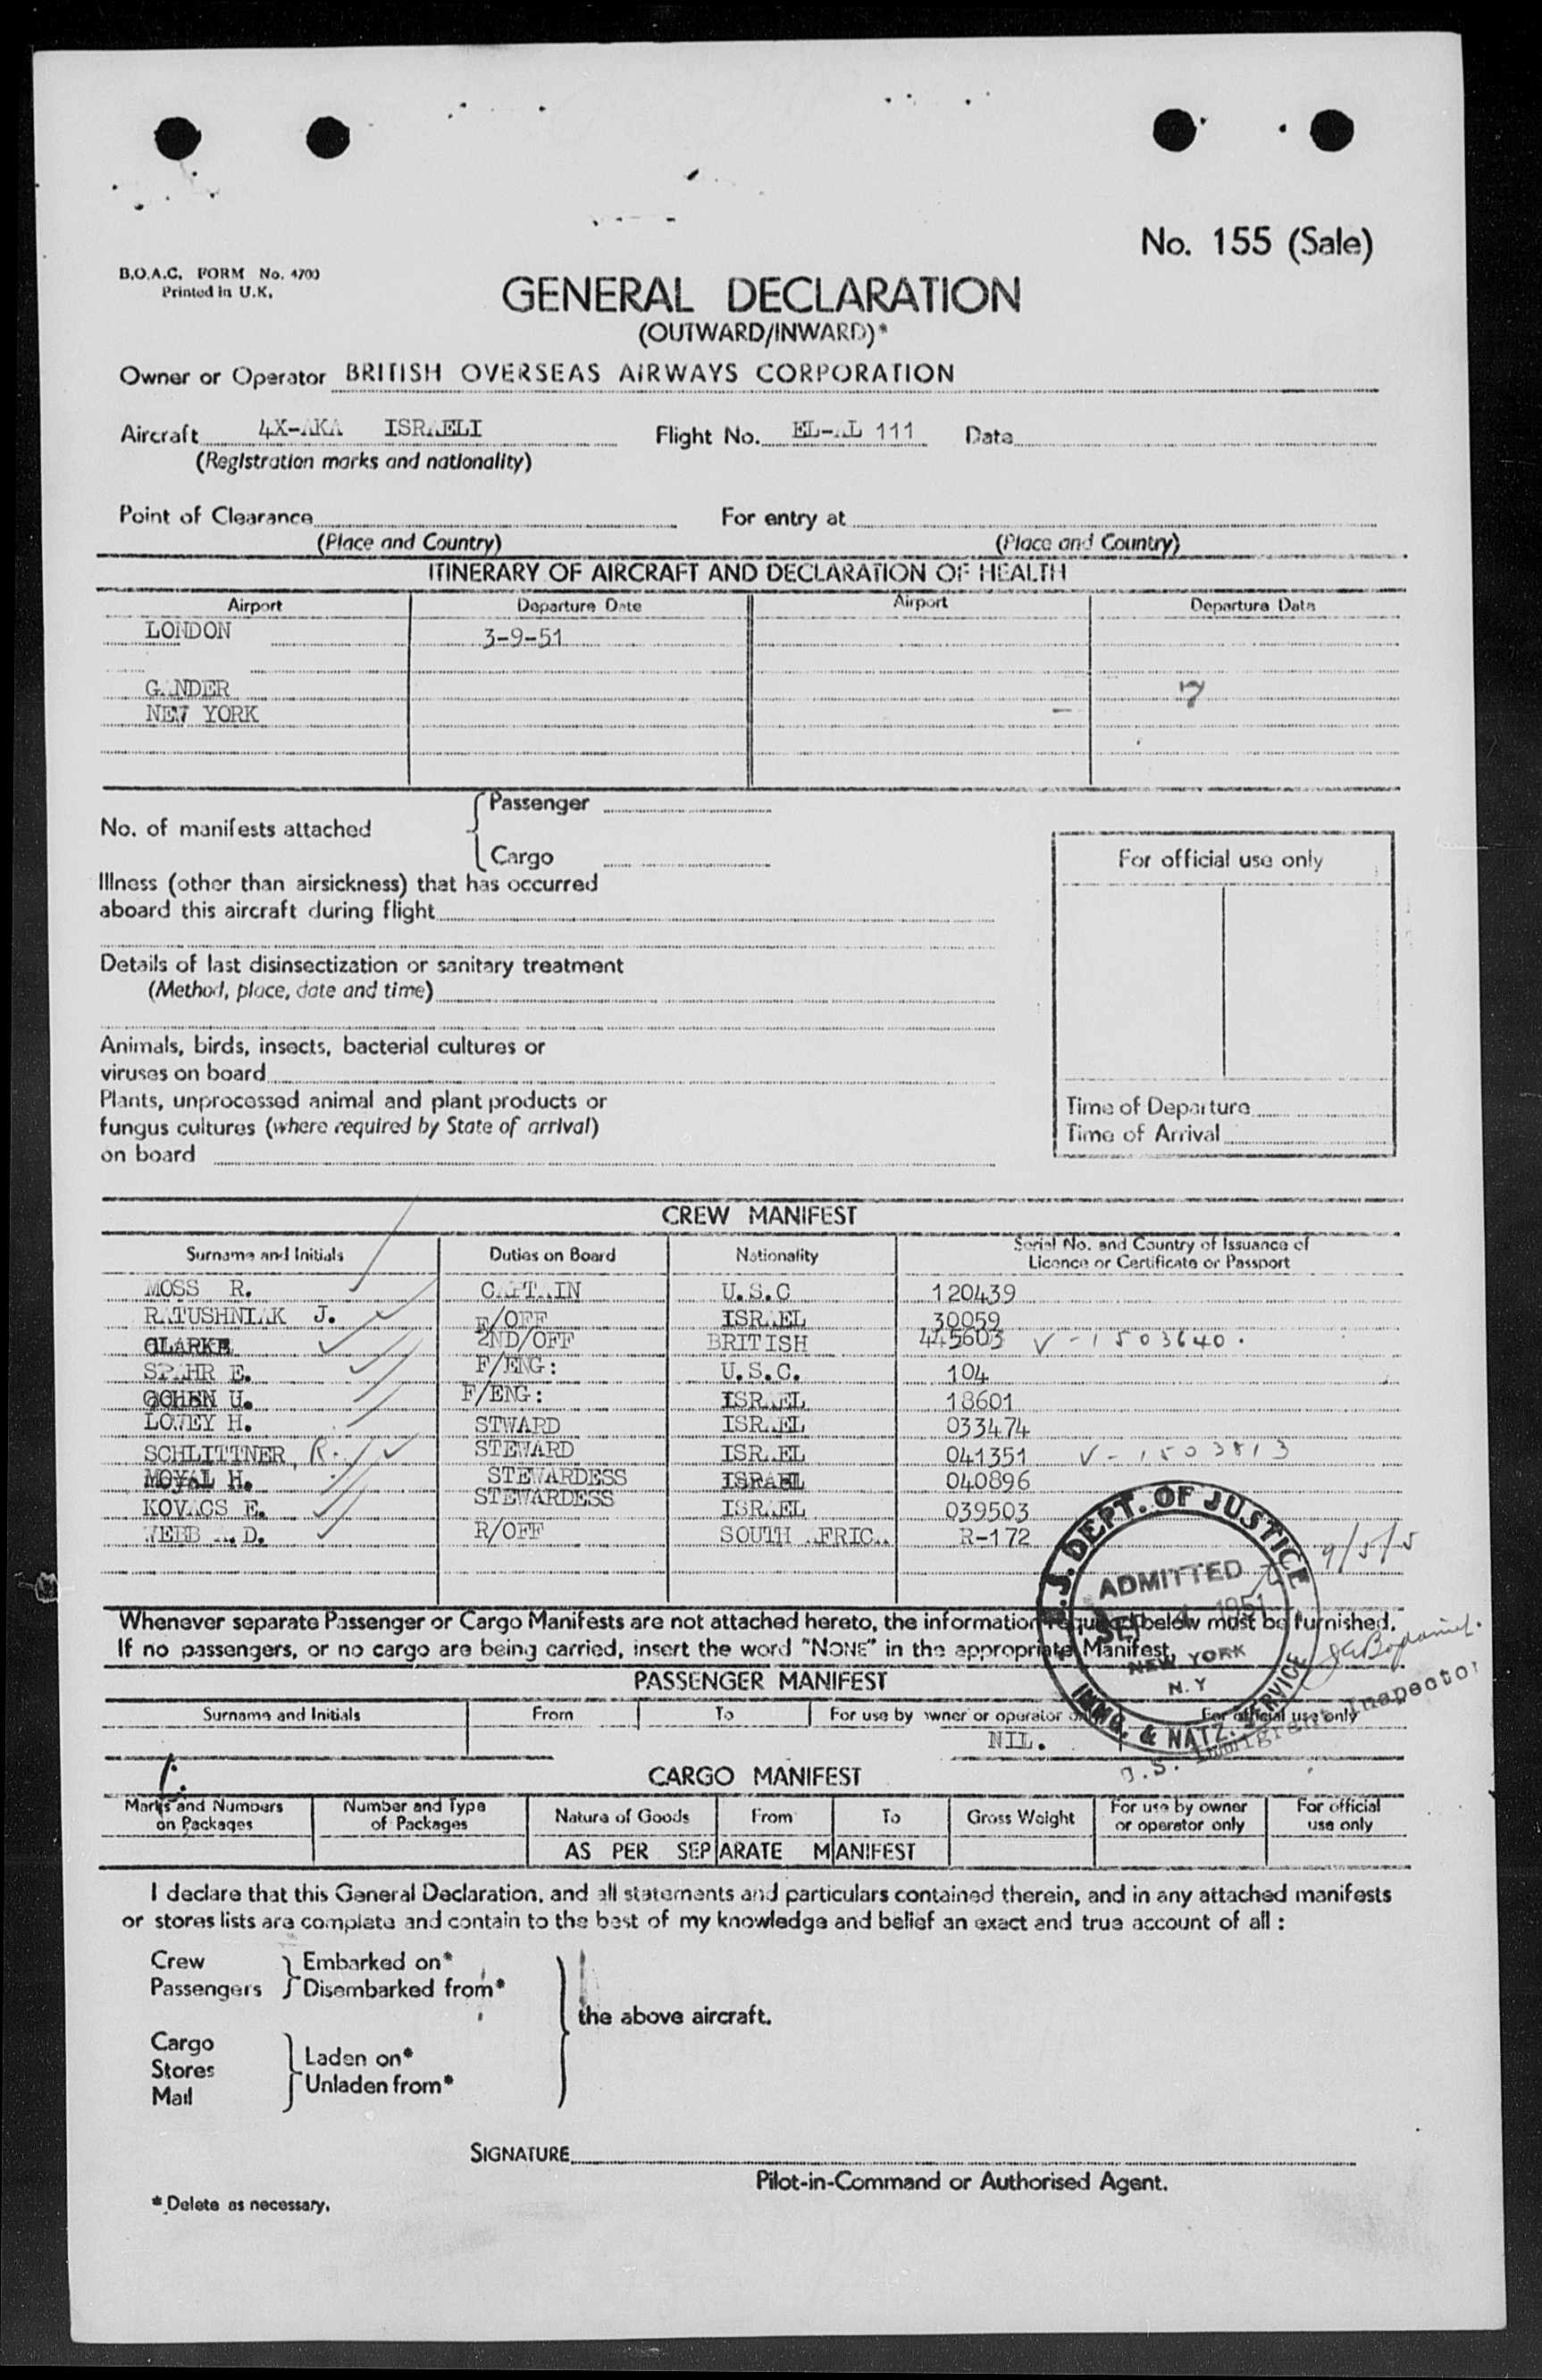 No. 155 (Sale)
B.O.A.C. FORM No. 4700
Printed in U.K.
GENERAL DECLARATION
(OUTWARD/INWARD)*
Owner or Operator BRITISH OVERSEAS AIRWAYS CORPORATION
Aircraft 4X-AKA ISRAELI Flight No. EL-AL 111 Date
(Registration marks and nationality)
Point of Clearance For entry at
(Place and Country) (Place and Country)
ITINERARY OF AIRCRAFT AND DECLARATION OF HEALTH
Airport Departure Date Airport Departure Date
LONDON 3-9-51
GANDER
NEW YORK
No. of manifests attached { Passenger
Cargo
For official use only
Illness (other than airsickness) that has occurred
aboard this aircraft during flight
Details of last disinsectization or sanitary treatment
(Method, place, date and time)
Animals, birds, insects, bacterial cultures or
viruses on board
Plants, unprocessed animal and plant products or
fungus cultures (where required by State of arrival)
on board
Time of Departure
Time of Arrival
CREW MANIFEST
Surname and Initials Duties on Board Nationality Serial No. and Country of Issuance of
Licence or Certificate or Passport
MOSS R. CAPTAIN U.S.C 120439
RATUSHNIAK J. F/OFF ISRAEL 30059
CLARKE 2ND/OFF BRITISH 445603 V-1503640.
SPAHR E. F/ENG: U.S.C. 104
COHEN U. F/ENG: ISRAEL 18601
LOWEY H. STWARD ISRAEL 033474
SCHLITTNER, R. STEWARD ISRAEL 041351 V-1503813
MOYAL H. STEWARDESS ISRAEL 040896
KOVACS E. STEWARDESS ISRAEL 039503
WEBB A.D. R/OFF SOUTH AFRICA R-172
U.S. DEPT. OF JUSTICE
ADMITTED
SEP 4 1951
NEW YORK
N.Y
IMMG. & NATZ. SERVICE
U.S. Immigrant Inspector
Whenever separate Passenger or Cargo Manifests are not attached hereto, the information required below must be furnished.
If no passengers, or no cargo are being carried, insert the word "NONE" in the appropriate Manifest.
PASSENGER MANIFEST
Surname and Initials From To For use by owner or operator only For official use only
NIL.
CARGO MANIFEST
Marks and Numbers on Packages Number and Type of Packages Nature of Goods From To Gross Weight For use by owner or operator only For official use only
AS PER SEPARATE MANIFEST
I declare that this General Declaration, and all statements and particulars contained therein, and in any attached manifests
or stores lists are complete and contain to the best of my knowledge and belief an exact and true account of all :
Crew } Embarked on*
Passengers } Disembarked from*
the above aircraft.
Cargo
Stores } Laden on*
Mail } Unladen from*
SIGNATURE
Pilot-in-Command or Authorised Agent.
* Delete as necessary.